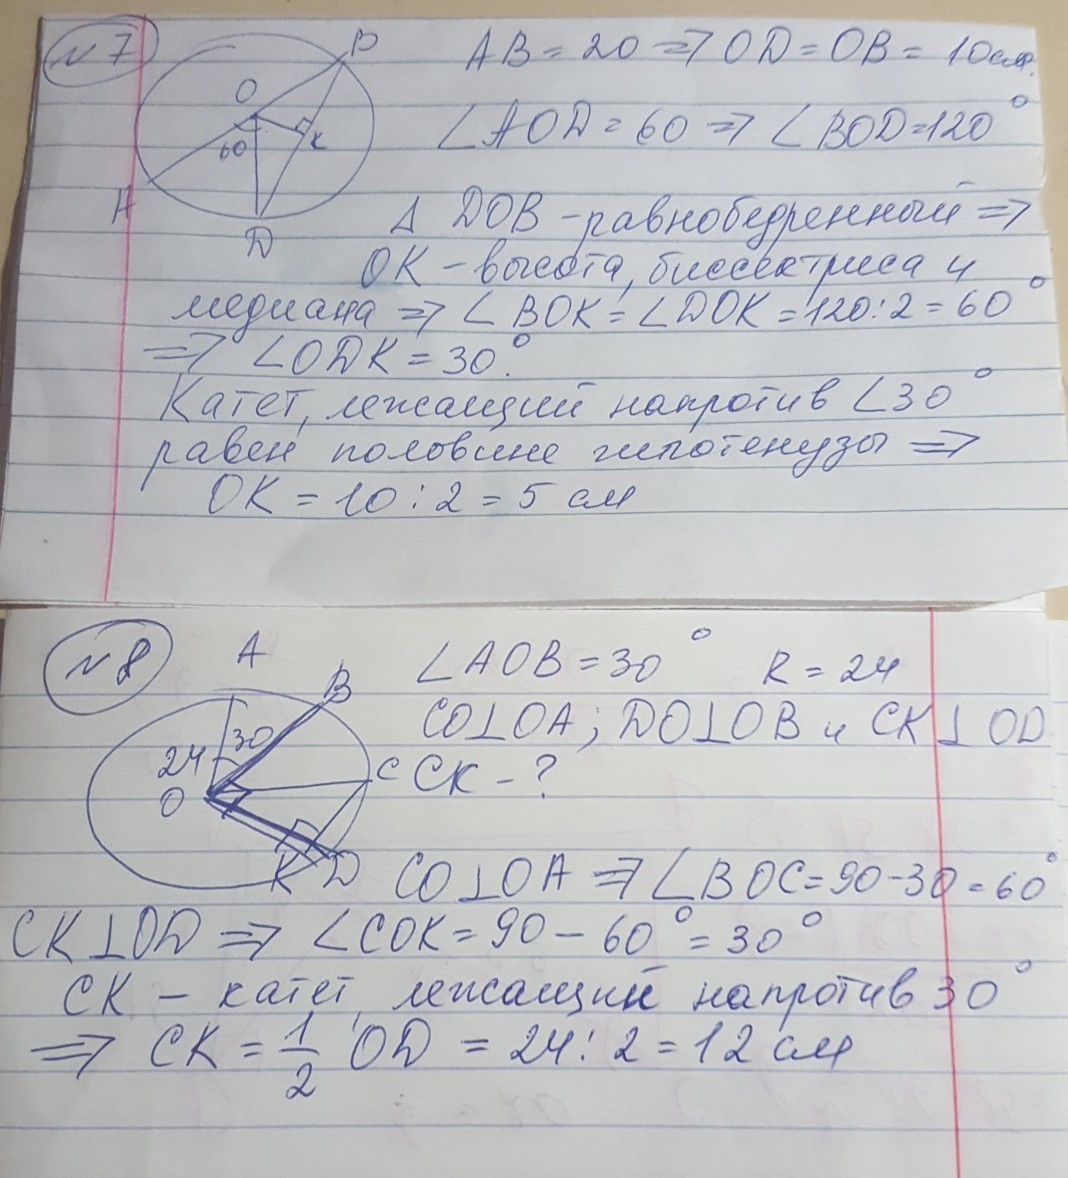 №7
B
O
60
K
A
D
AB = 20 => OD = OB = 10 см.
∠AOD = 60 => ∠BOD = 120°
Δ DOB - равнобедренный =>
OK - высота, биссектриса и
медиана => ∠BOK = ∠DOK = 120:2 = 60°
=> ∠ODK = 30°.
Катет, лежащий напротив ∠30°
равен половине гипотенузы =>
OK = 10 : 2 = 5 см
№8
A
B
30
24
O
C
K
D
∠AOB = 30° R = 24
CO⊥OA; DO⊥OB и CK⊥OD
CK - ?
CO⊥OA => ∠BOC = 90 - 30 = 60°
CK⊥OD => ∠COK = 90 - 60° = 30°
CK - катет, лежащий напротив 30°
=> CK = 1/2 OD = 24 : 2 = 12 см